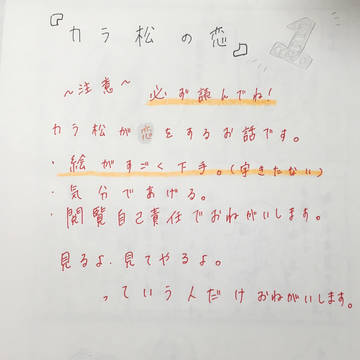 『カラ松の恋』 1
～注意～ 必ず読んでね!
カラ松が恋をするお話です。
・絵がすごく下手。(字きたない)
・気分であげる。
・閲覧自己責任でおねがいします。
見るよ、見てやるよ。
っていう人だけおねがいします。